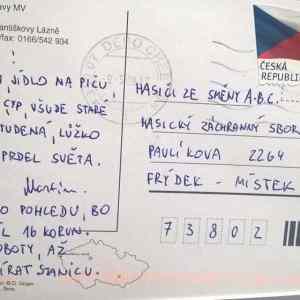 avy MV
antiškovy Lázně
/fax: 0166/542 934
JÍDLO NA PIČU
CYP, VŠUDE STARÉ
TUDENÁ, LŮŽKO
PRDEL SVĚTA.
Martin.
O POHLEDU, BO
IL 16 KORUN.
BOTY, AŽ
ÍRAT STANICU.
ČESKÁ
REPUBLI
HASIČI ZE SMĚNY A.B.C.
HASICKÝ ZÁCHRANNÝ SBOR
PAULÍKOVA 2264
FRÝDEK - MÍSTEK
73802